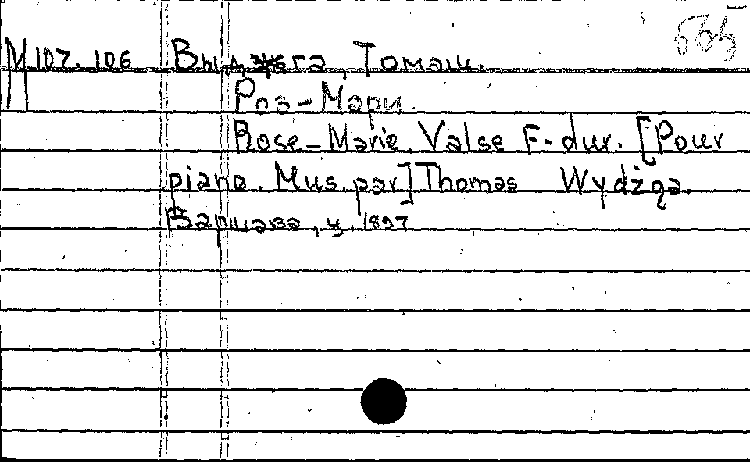 565
М 107. 106 Выджга, Томаш.
Роз-Мари.
Rose-Marie. Valse F-dur. [Pour
piano. Mus. par] Thomas Wydżga.
Варшава, ц. 1897